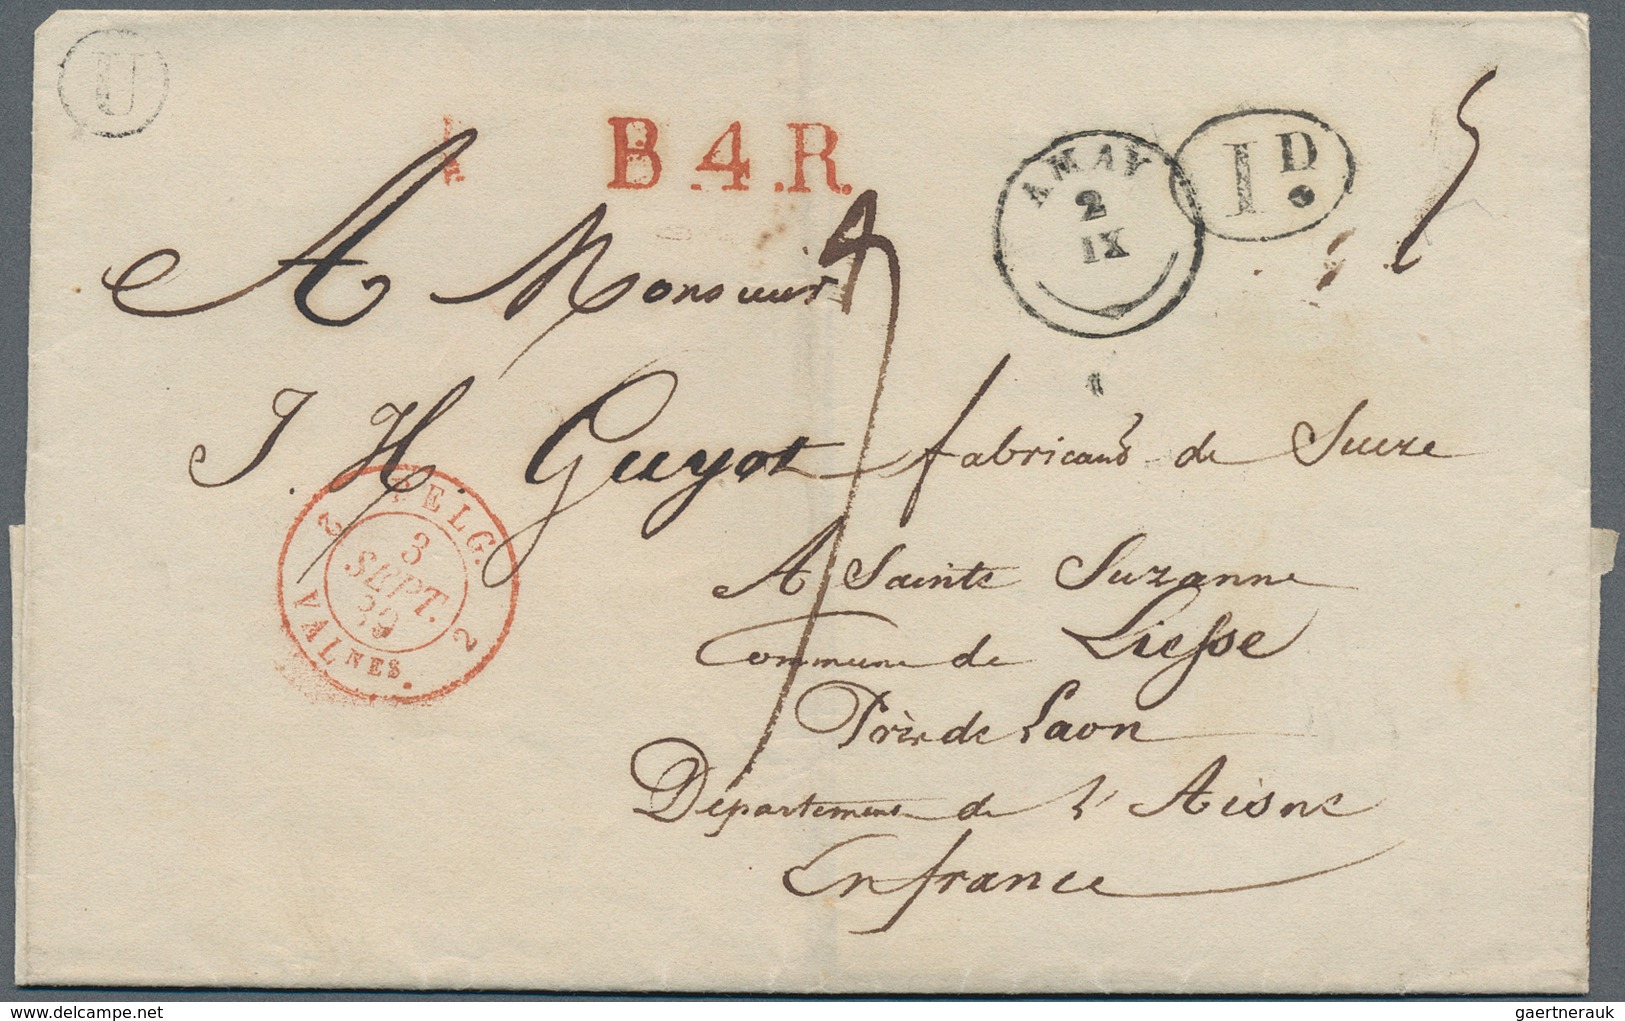 U
B.4.R.
AMAY
2
IX
I D.
A Monsieur
J. H. Guyot fabricant de Sucre
BELG.
2 2
3
SEPT.
39
VALNES.
A Sainte Suzanne
Commune de Liesse
Près de Laon
Département de l'Aisne
En france
delcampe.net
gaertnerauk